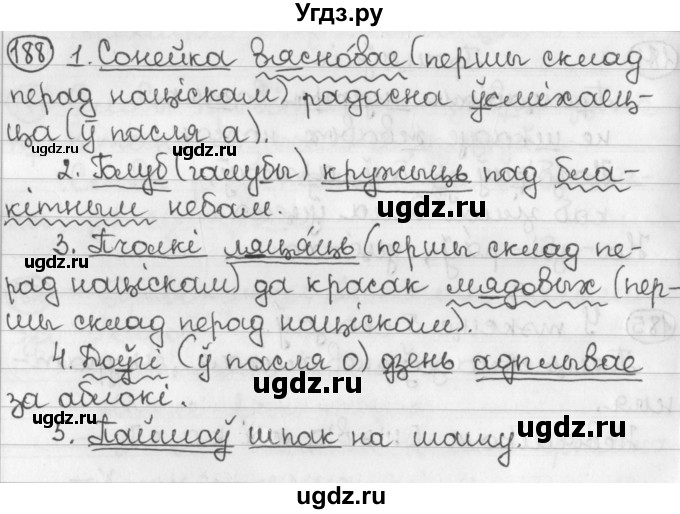 Угдз.ру
188 1. Сонейка вясновае (першы склад
перад націскам) радасна ўсміхаец-
ца (ў пасля а).
ugdz.ru
2. Голуб (галубы) кружыць над бла-
кітным небам.
ugdz.ru
ugdz.ru
3. Пчолкі ляцяць (першы склад пе-
ugdz.ru
рад націскам) да красак мядовых (пер-
шы склад перад націскам).
ugdz.ru
4. Доўгі (ў пасля о) дзень адплывае
ugdz.ru
за аблокі.
5. Пайшоў шпак на шашу.
ugdz.ru
ugdz.ru